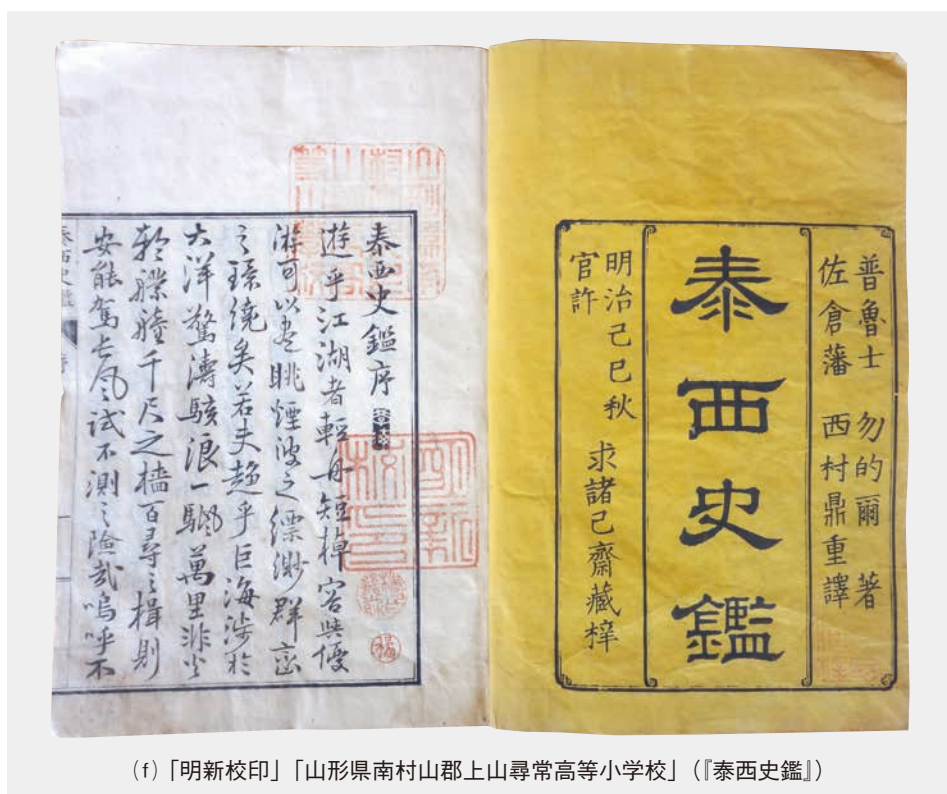 普魯士 勿的爾 著
佐倉藩 西村鼎重譯
泰西史鑑
明治己巳秋
官許
求諸己齋藏梓
泰西史鑑序
遊乎江湖者輕舟短棹容與優
游可以盡眺煙波之縹渺群巒
之環繞矣若夫趨乎巨海涉於
大洋驚濤駭浪一颿萬里非
艨艟千尺之檣百尋之楫則
安能駕長風試不測之險哉嗚呼不
泰西史鑑 序
明新校印
(f)「明新校印」「山形県南村山郡上山尋常高等小学校」(『泰西史鑑』)